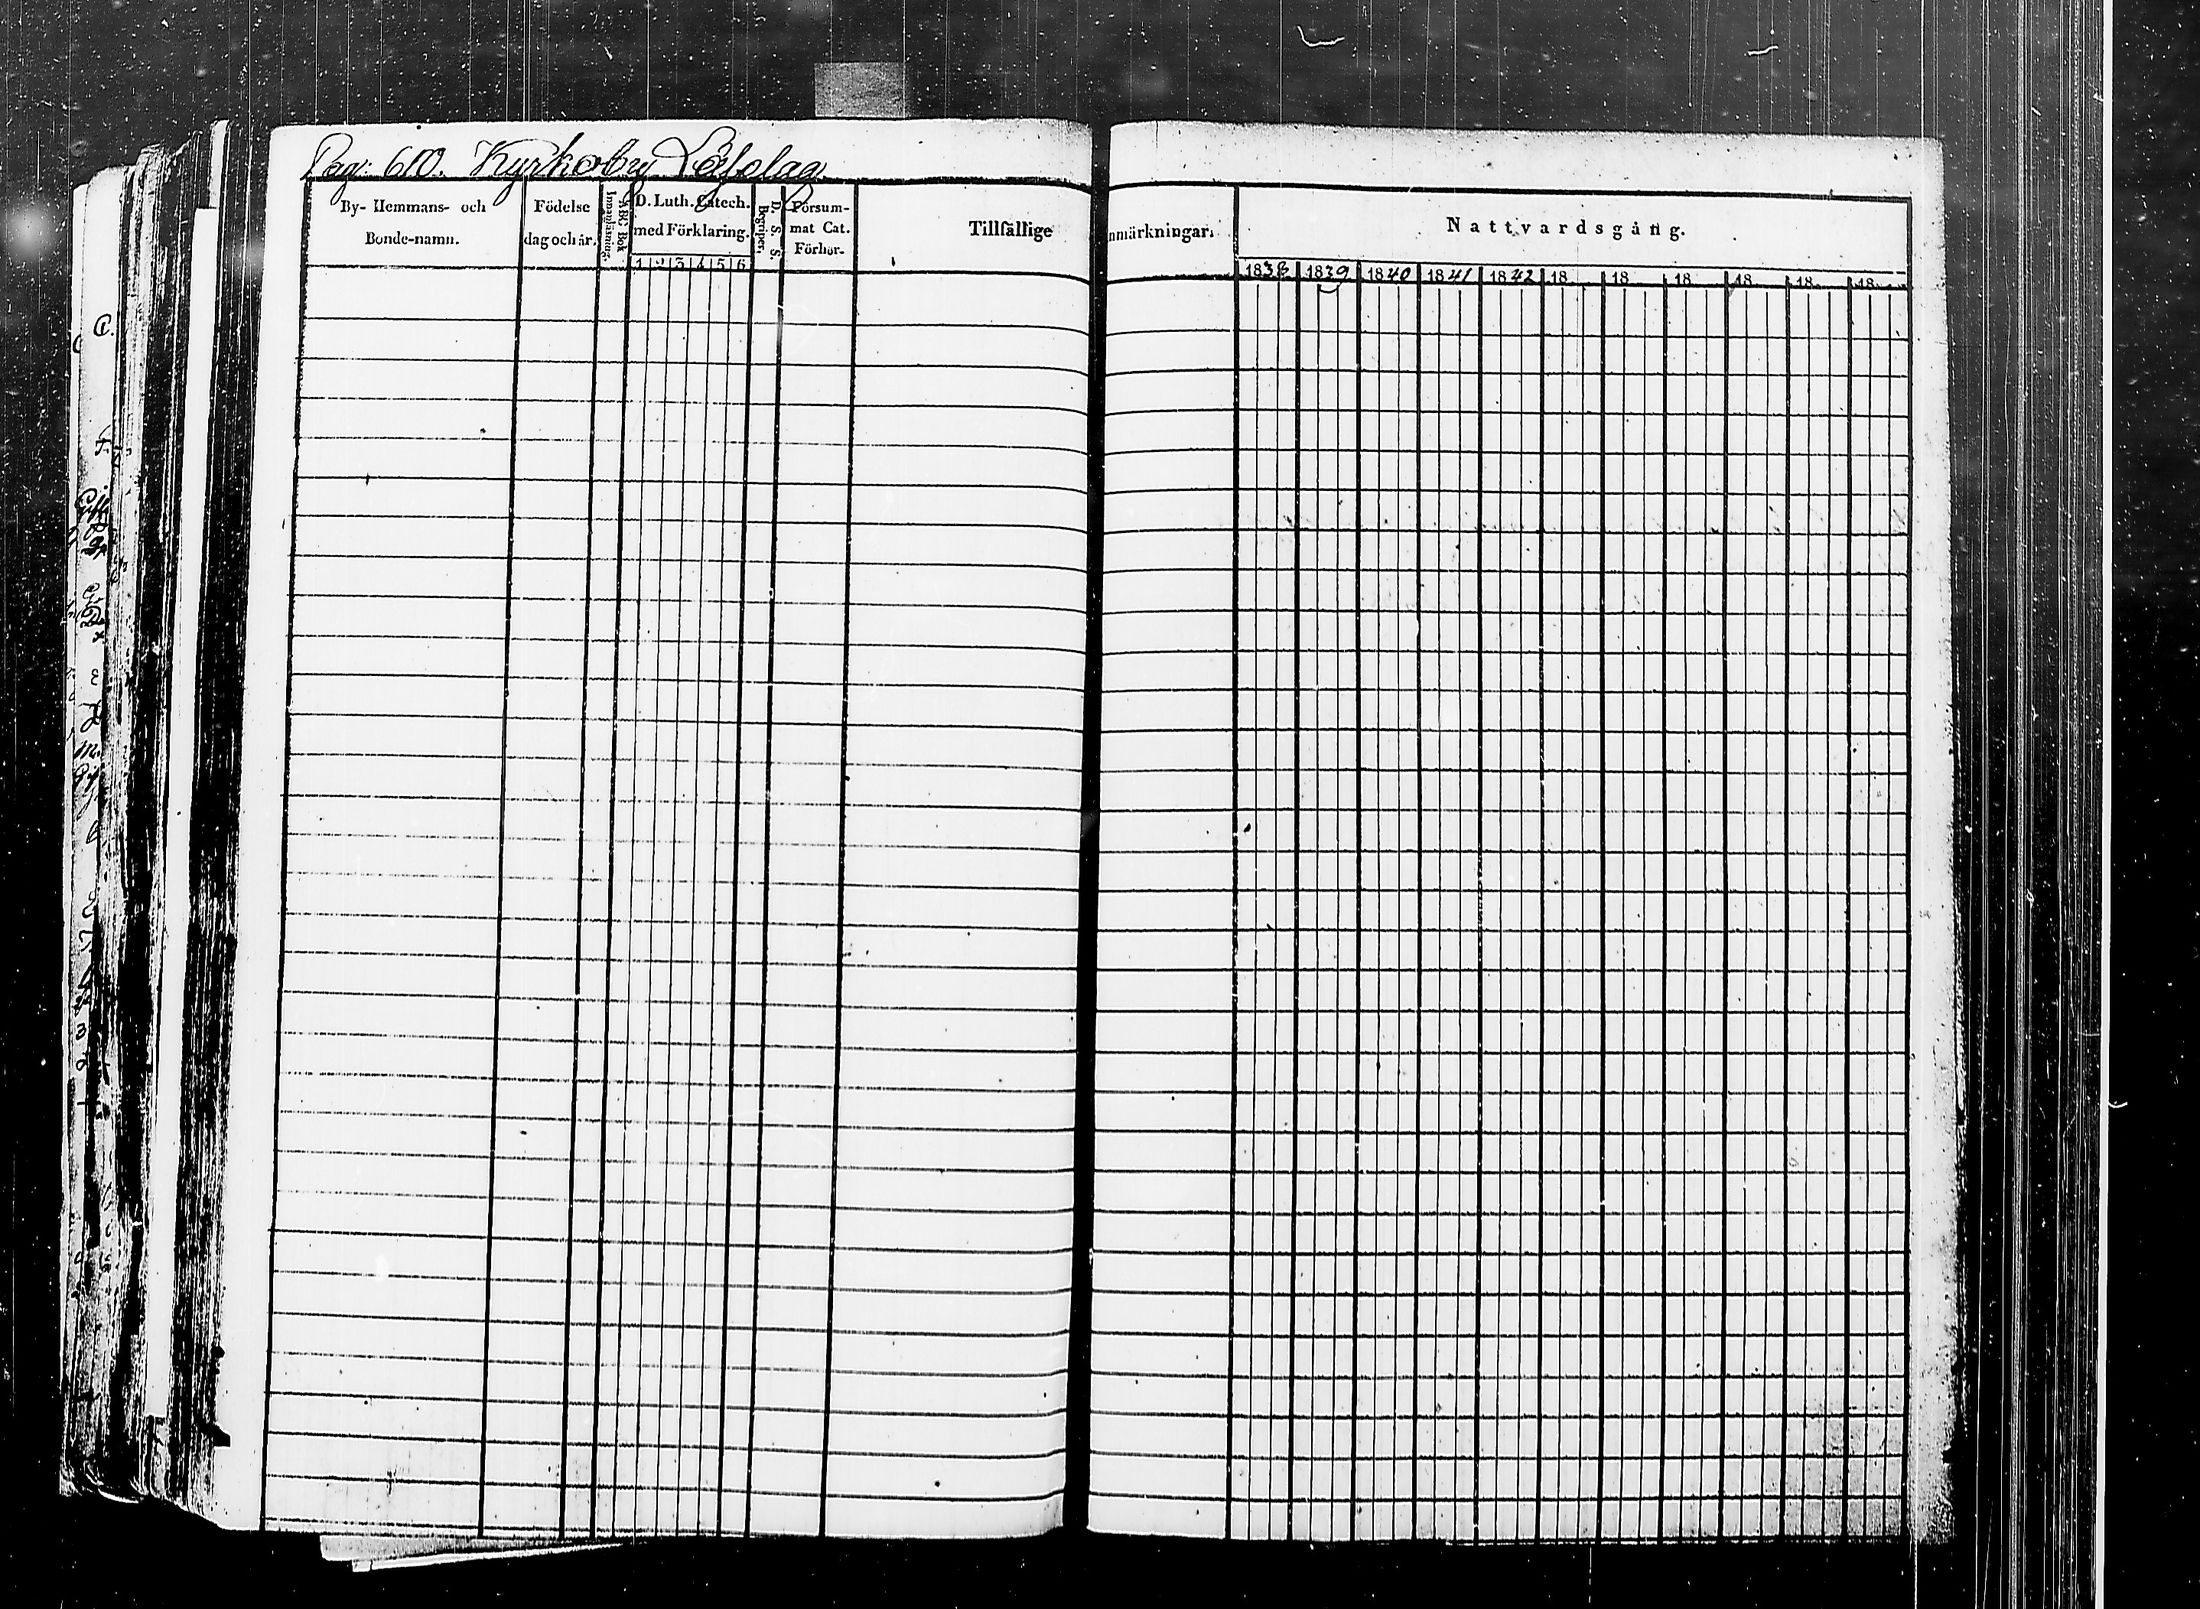 Pag: 610. Kyrkoby Läselag
By- Hemmans- och
Bonde-namn.
Födelse
dag och år.
ABC Bok
Innanläsning.
D. Luth. Catech.
med Förklaring.
1 2 3 4 5 6
D. S. S.
Begriper.
Försum-
mat Cat.
Förhör.
Tillfällige
Anmärkningar.
Nattvardsgång.
1838 1839 1840 1841 1842 18 18 18 18 18 18